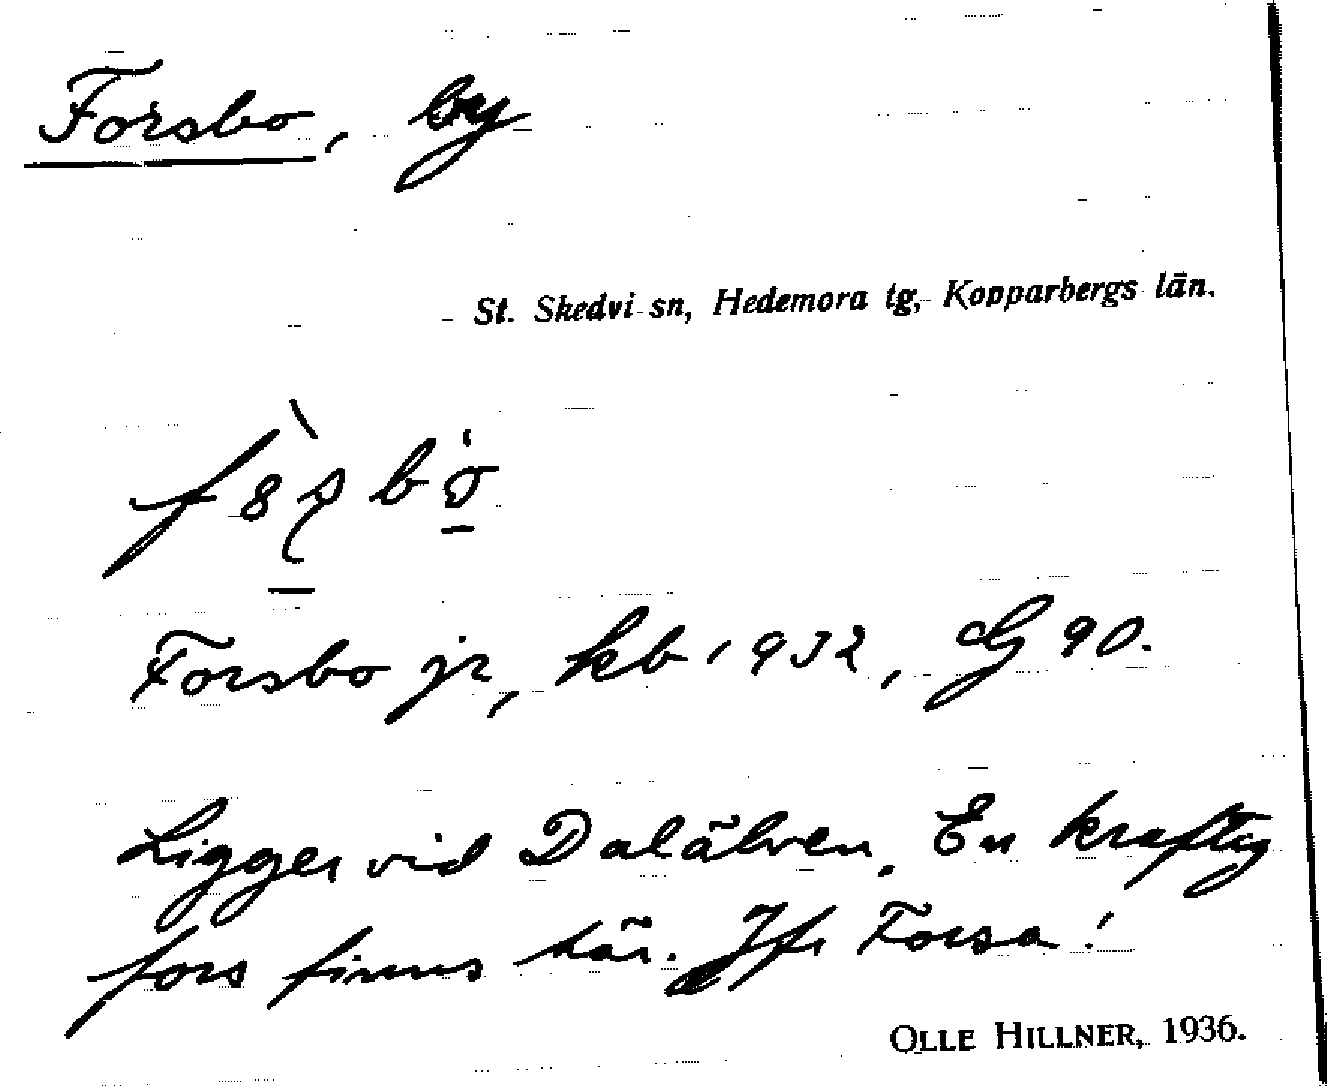 Forsbo, by
St. Skedvi sn, Hedemora tg, Kopparbergs län.
Forsbo jr, kb 1932, G 90.
Ligger vid Dalälven. En kraftig
fors finns här. Jfr Forsa!
OLLE HILLNER, 1936.